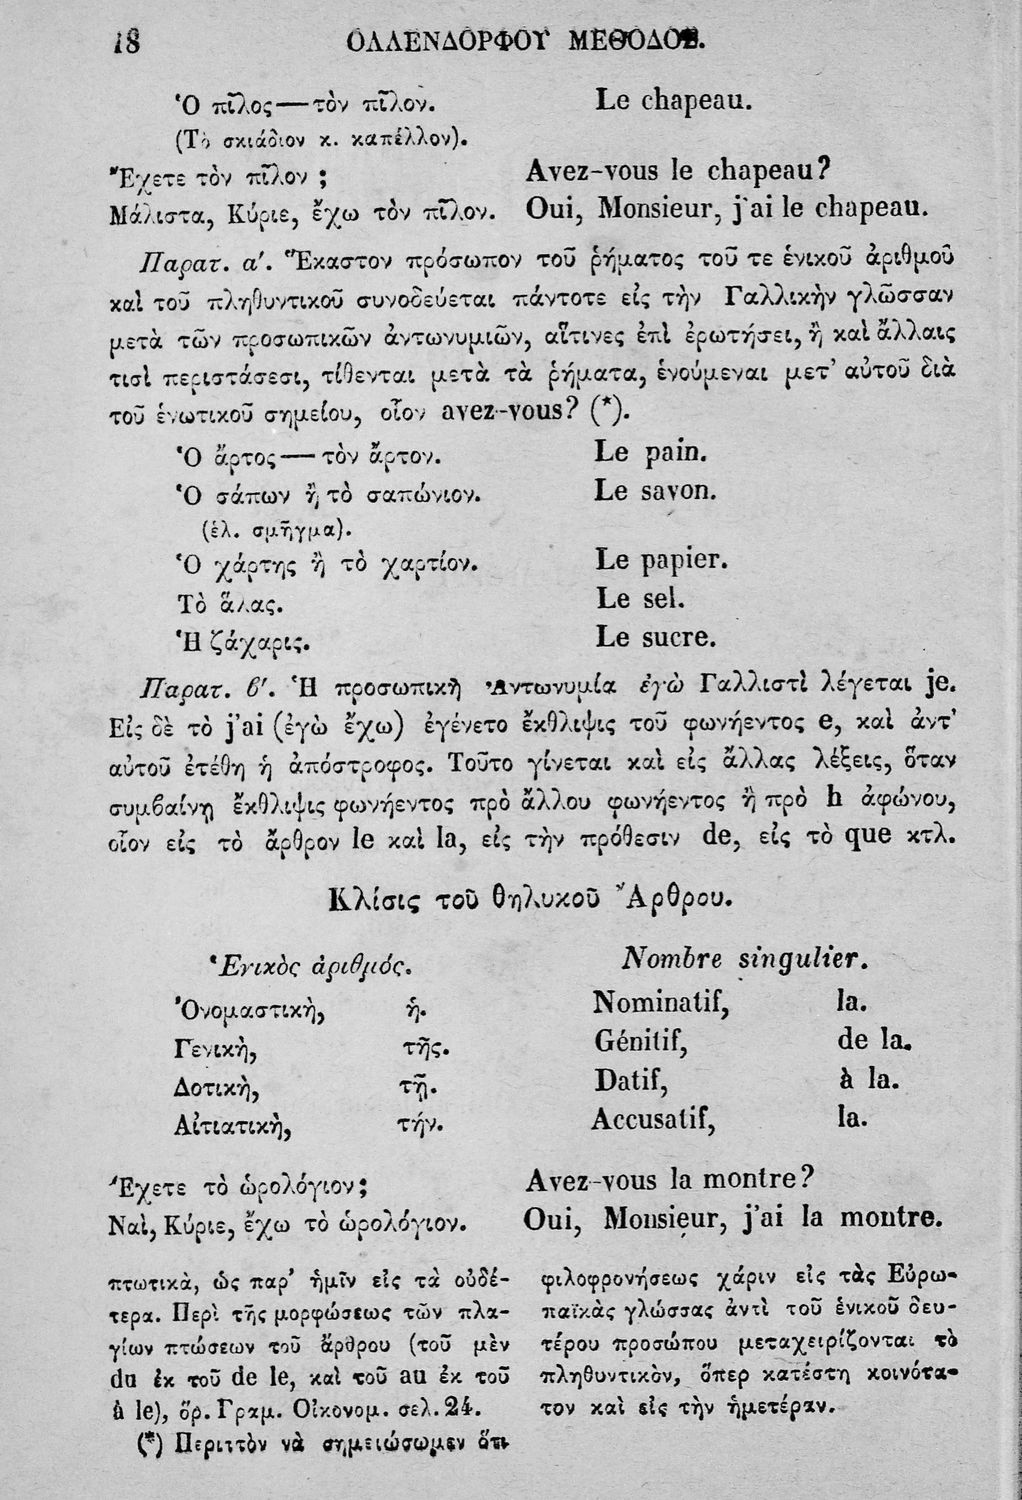 18 ΟΛΛΕΝΔΟΡΦΟΥ ΜΕΘΟΔΟΣ.
Ὁ πῖλος — τὸν πῖλον. Le chapeau.
(Τὸ σκιάδιον κ. καπέλλον).
Ἔχετε τὸν πῖλον ; Avez-vous le chapeau?
Μάλιστα, Κύριε, ἔχω τὸν πῖλον. Oui, Monsieur, j'ai le chapeau.
Παρατ. α'. Ἕκαστον πρόσωπον τοῦ ῥήματος τοῦ τε ἑνικοῦ ἀριθμοῦ
καὶ τοῦ πληθυντικοῦ συνοδεύεται πάντοτε εἰς τὴν Γαλλικὴν γλῶσσαν
μετὰ τῶν προσωπικῶν ἀντωνυμιῶν, αἵτινες ἐπὶ ἐρωτήσει, ἢ καὶ ἄλλαις
τισὶ περιστάσεσι, τίθενται μετὰ τὰ ῥήματα, ἑνούμεναι μετ' αὐτοῦ διὰ
τοῦ ἑνωτικοῦ σημείου, οἷον avez-vous? (*).
Ὁ ἄρτος — τὸν ἄρτον. Le pain.
Ὁ σάπων ἢ τὸ σαπώνιον. Le savon.
(ἑλ. σμῆγμα).
Ὁ χάρτης ἢ τὸ χαρτίον. Le papier.
Τὸ ἅλας. Le sel.
Ἡ ζάχαρις. Le sucre.
Παρατ. β'. Ἡ προσωπικὴ Ἀντωνυμία ἐγὼ Γαλλιστὶ λέγεται je.
Εἰς δὲ τὸ j'ai (ἐγὼ ἔχω) ἐγένετο ἔκθλιψις τοῦ φωνήεντος e, καὶ ἀντ'
αὐτοῦ ἐτέθη ἡ ἀπόστροφος. Τοῦτο γίνεται καὶ εἰς ἄλλας λέξεις, ὅταν
συμβαίνῃ ἔκθλιψις φωνήεντος πρὸ ἄλλου φωνήεντος ἢ πρὸ h ἀφώνου,
οἷον εἰς τὸ ἄρθρον le καὶ la, εἰς τὴν πρόθεσιν de, εἰς τὸ que κτλ.
Κλίσις τοῦ θηλυκοῦ Ἄρθρου.
Ἑνικὸς ἀριθμός. Nombre singulier.
Ὀνομαστικὴ, ἡ. Nominatif, la.
Γενικὴ, τῆς. Génitif, de la.
Δοτικὴ, τῇ. Datif, à la.
Αἰτιατικὴ, τήν. Accusatif, la.
Ἔχετε τὸ ὡρολόγιον; Avez-vous la montre?
Ναὶ, Κύριε, ἔχω τὸ ὡρολόγιον. Oui, Monsieur, j'ai la montre.
πτωτικὰ, ὡς παρ' ἡμῖν εἰς τὰ οὐδέ-
τερα. Περὶ τῆς μορφώσεως τῶν πλα-
γίων πτώσεων τοῦ ἄρθρου (τοῦ μὲν
du ἐκ τοῦ de le, καὶ τοῦ au ἐκ τοῦ
à le), ὅρ. Γραμ. Οἰκονομ. σελ. 24.
(*) Περιττὸν νὰ σημειώσωμεν ὅτι
φιλοφρονήσεως χάριν εἰς τὰς Εὐρω-
παϊκὰς γλώσσας ἀντὶ τοῦ ἑνικοῦ δευ-
τέρου προσώπου μεταχειρίζονται τὸ
πληθυντικὸν, ὅπερ κατέστη κοινότα-
τον καὶ εἰς τὴν ἡμετέραν.